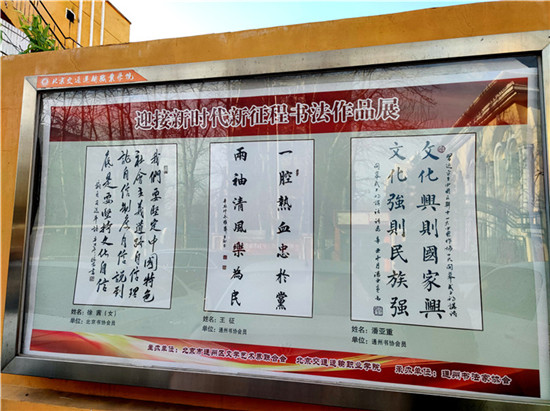 北京交通运输职业学院
迎接新时代新征程书法作品展
我們要堅定中國特色
社會主義道路自信理
論自信制度自信說到
底是要堅持文化自信
一腔熱血忠於黨
兩袖清風樂為民
文化興則國家興
文化強則民族強
姓名：徐（女）
单位：北京书协会员
姓名：王 征
单位：通州书协会员
姓名：潘亚重
单位：通州书协会员
主办单位：北京市通州区文学艺术界联合会 北京交通运输职业学院 承办单位：通州书法家协会